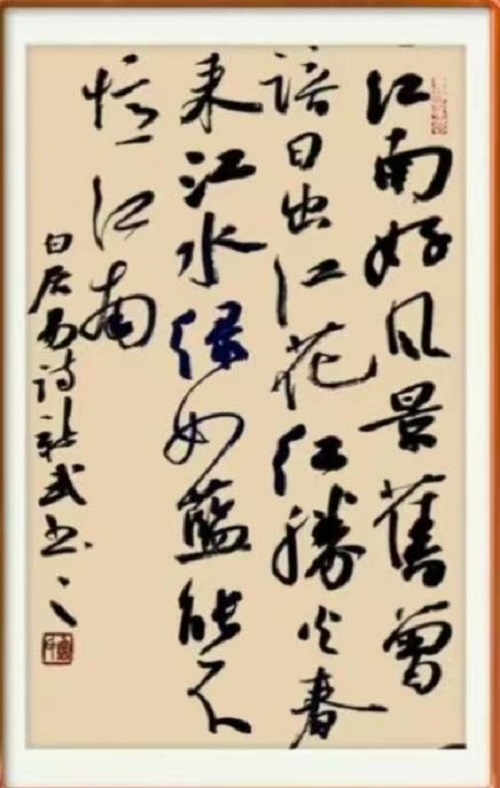 江南好风景舊曾
谙日出江花红勝火春
来江水绿如蓝能不
忆江南
白居易诗新武书之